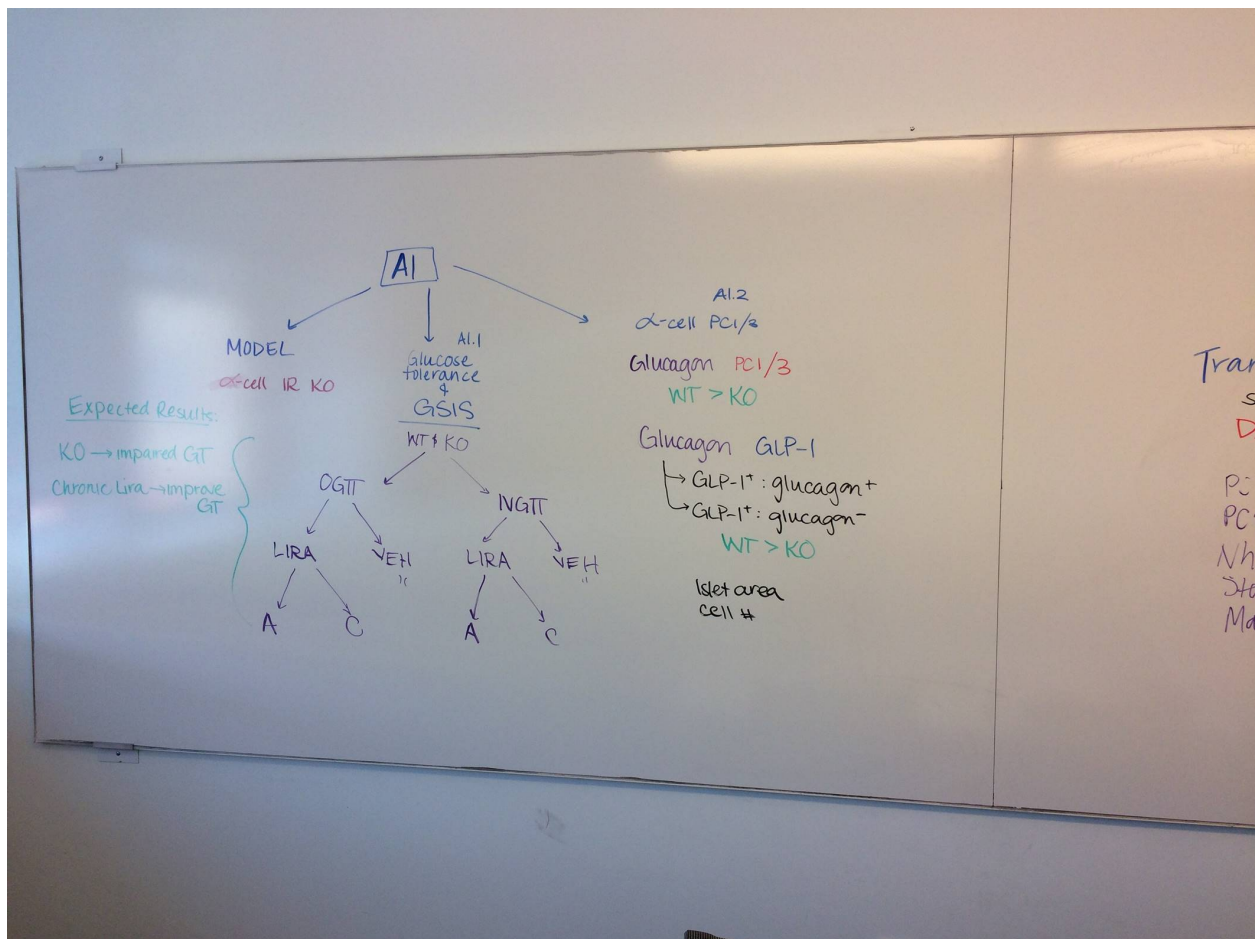 A1
MODEL
α-cell IR KO
Expected Results:
KO → impaired GT
Chronic Lira → improve
GT
A1.1
Glucose
tolerance
&
GSIS
WT & KO
OGTT
IVGTT
LIRA
VEH
LIRA
VEH
A
C
A
C
A1.2
α-cell PC1/3
Glucagon PC1/3
WT > KO
Glucagon GLP-1
→ GLP-1⁺ : glucagon⁺
→ GLP-1⁺ : glucagon⁻
WT > KO
Islet area
cell #
Tran
S
D
PC
Nh
Sto
Ma